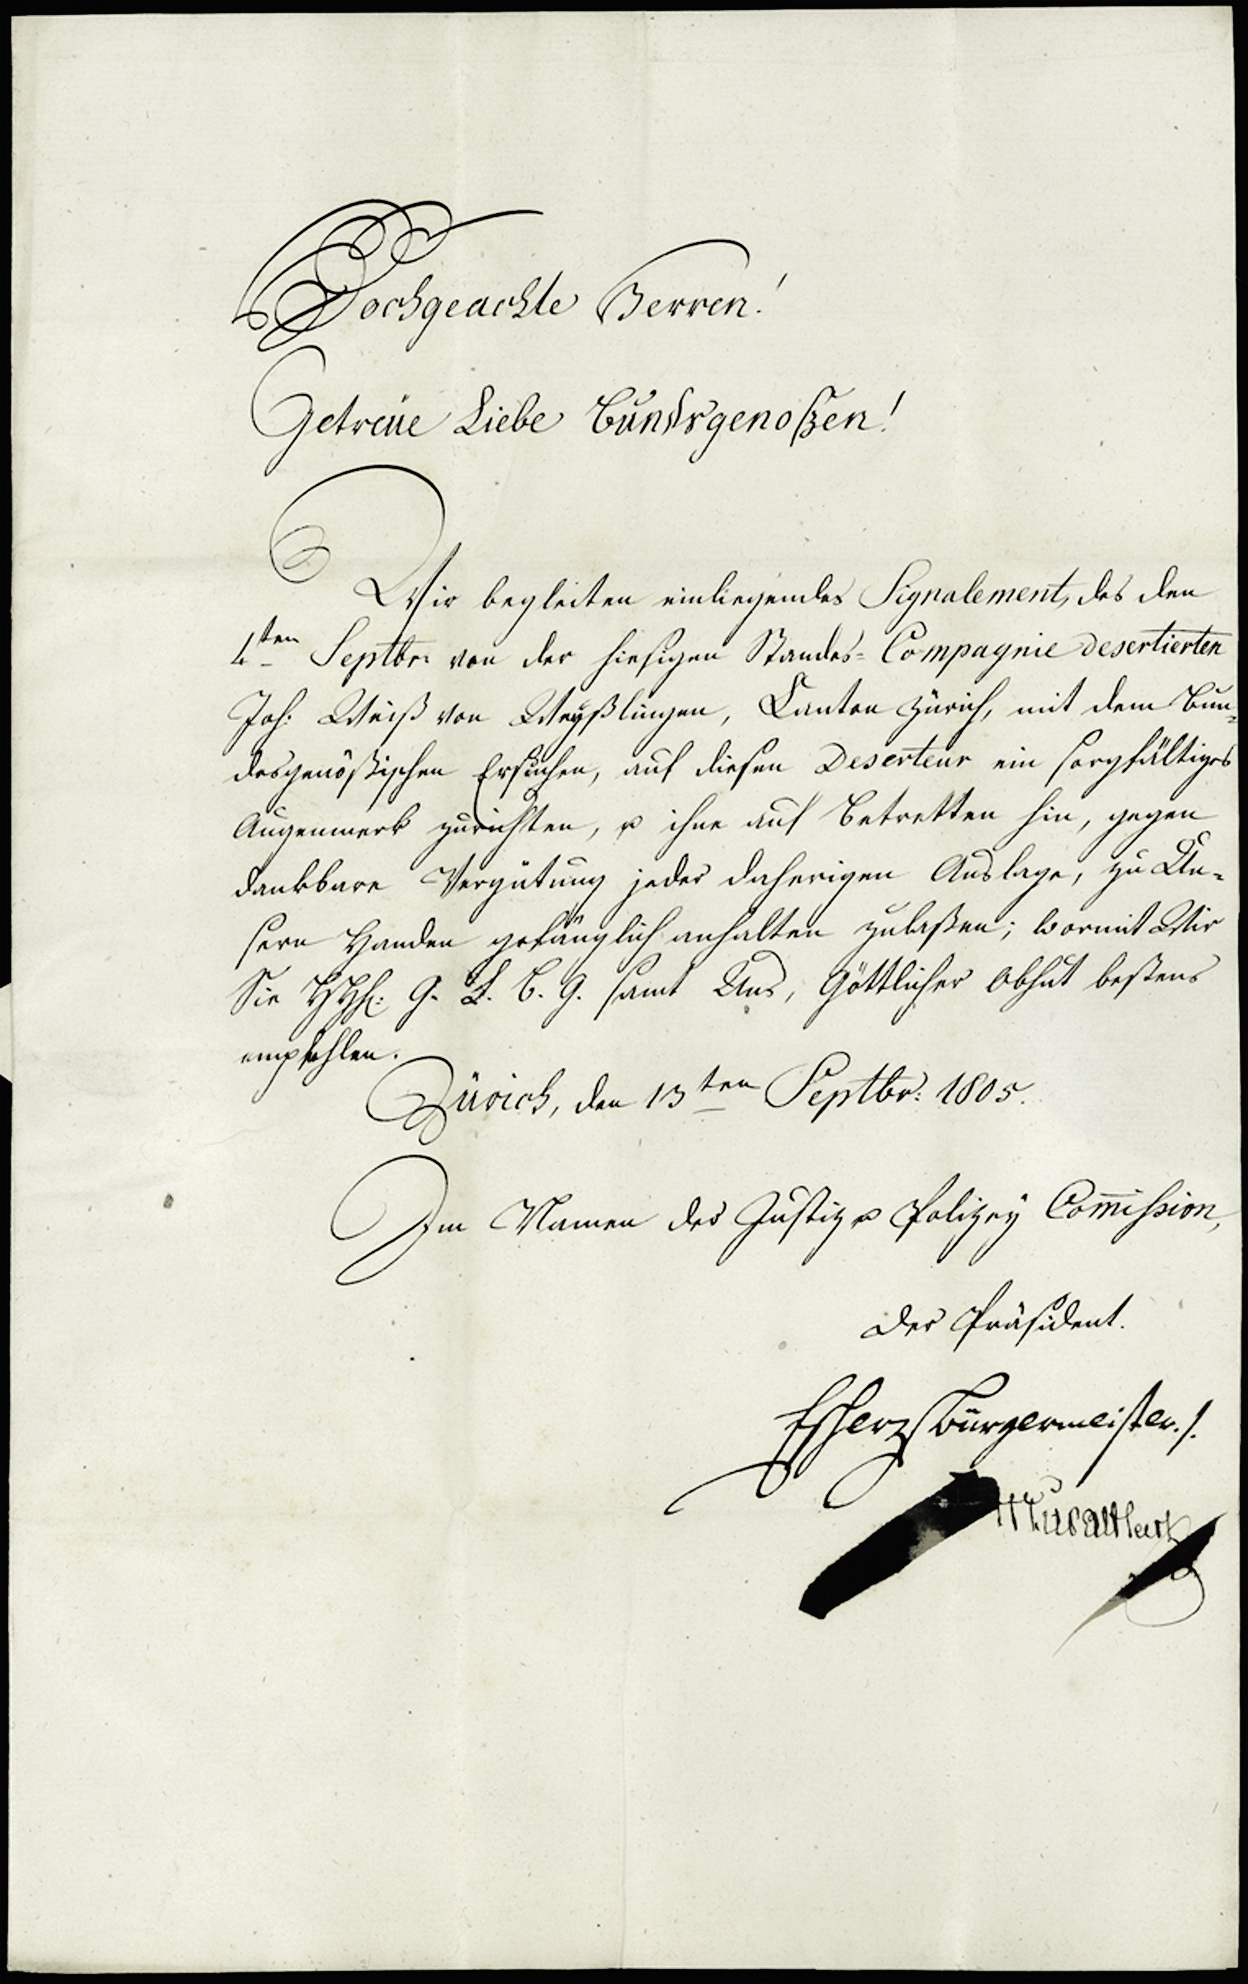 Hochgeachte Herren!
Getreüe Liebe Bundsgenoßen!
Wir begleiten einliegendes Signalement, des den
4ten Septbr: von der hiesigen Standes= Compagnie desertierten
Joh: Weiß von Weyßlingen, Canton Zürich, mit dem Bun=
desgenößischen Ersuchen, auf diesen Deserteur ein sorgfältiges
Augenmerk zurichten, u ihne auf Betretten hin, gegen
dankbare Vergütung jeder daherigen Auslage, zu Un=
sern Handen gefänglich anhalten zulaßen; wormit Wir
Sie HHh: G. L. B. G. samt Uns, Göttlicher Obhut bestens
empfehlen.
Zürich, den 13ten Septbr: 1805.
Im Namen der Justiz u Polizey Com̅ißion,
Der Präsident.
Escher Bürgermeister.